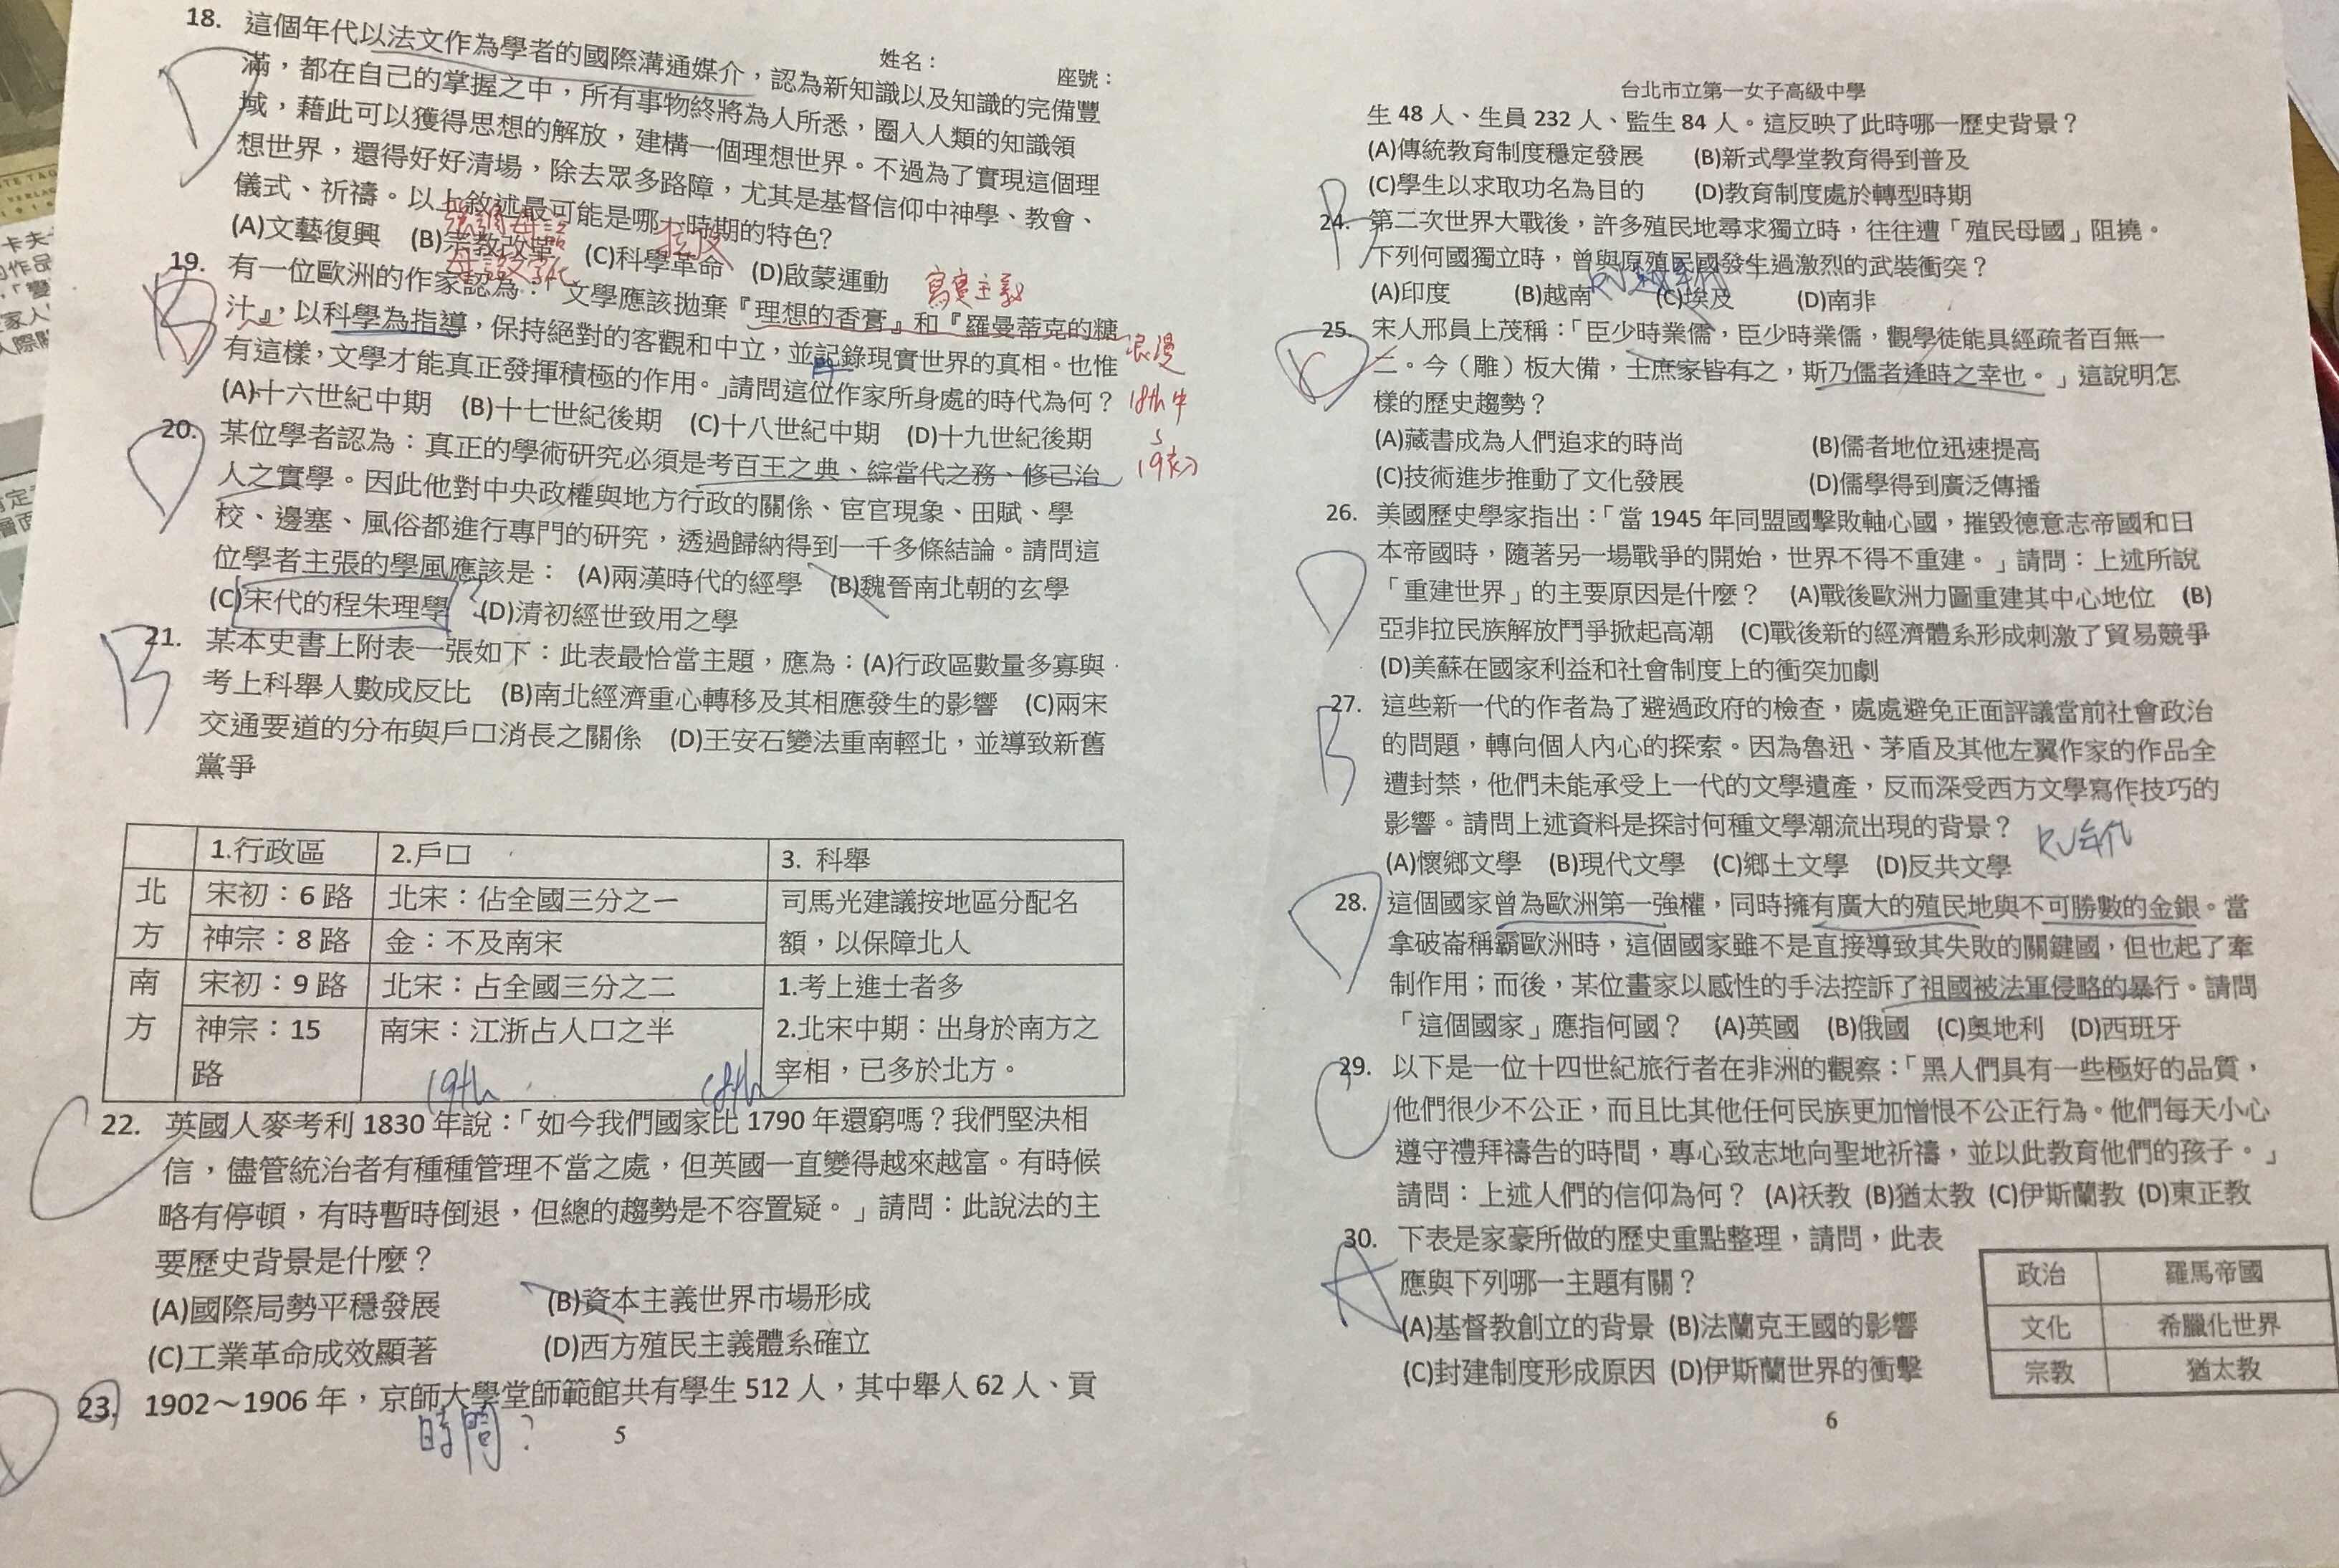 姓名：
座號：
18. 這個年代以法文作為學者的國際溝通媒介，認為新知識以及知識的完備豐
滿，都在自己的掌握之中，所有事物終將為人所悉，圈入人類的知識領
域，藉此可以獲得思想的解放，建構一個理想世界。不過為了實現這個理
想世界，還得好好清場，除去眾多路障，尤其是基督信仰中神學、教會、
儀式、祈禱。以上敘述最可能是哪一時期的特色?
(A)文藝復興 (B)宗教改革 (C)科學革命 (D)啟蒙運動
D
強調母語
母語文字化
拉丁文
19. 有一位歐洲的作家認為：「文學應該拋棄『理想的香膏』和『羅曼蒂克的糖
汁』，以科學為指導，保持絕對的客觀和中立，並記錄現實世界的真相。也惟
有這樣，文學才能真正發揮積極的作用。」請問這位作家所身處的時代為何？
(A)十六世紀中期 (B)十七世紀後期 (C)十八世紀中期 (D)十九世紀後期
寫實主義
浪漫
18th中
19初
20. 某位學者認為：真正的學術研究必須是考百王之典、綜當代之務、修己治
人之實學。因此他對中央政權與地方行政的關係、宦官現象、田賦、學
校、邊塞、風俗都進行專門的研究，透過歸納得到一千多條結論。請問這
位學者主張的學風應該是： (A)兩漢時代的經學 (B)魏晉南北朝的玄學
(C)宋代的程朱理學 (D)清初經世致用之學
D
21. 某本史書上附表一張如下：此表最恰當主題，應為：(A)行政區數量多寡與
考上科舉人數成反比 (B)南北經濟重心轉移及其相應發生的影響 (C)兩宋
交通要道的分布與戶口消長之關係 (D)王安石變法重南輕北，並導致新舊
黨爭
B
1.行政區 2.戶口 3. 科舉
北方 宋初：6 路 北宋：佔全國三分之一 司馬光建議按地區分配名
神宗：8 路 金：不及南宋 額，以保障北人
南方 宋初：9 路 北宋：占全國三分之二 1.考上進士者多
神宗：15 南宋：江浙占人口之半 2.北宋中期：出身於南方之
路 宰相，已多於北方。
19th 18th
22. 英國人麥考利 1830 年說：「如今我們國家比 1790 年還窮嗎？我們堅決相
信，儘管統治者有種種管理不當之處，但英國一直變得越來越富。有時候
略有停頓，有時暫時倒退，但總的趨勢是不容置疑。」請問：此說法的主
要歷史背景是什麼？
(A)國際局勢平穩發展 (B)資本主義世界市場形成
(C)工業革命成效顯著 (D)西方殖民主義體系確立
C
23. 1902～1906 年，京師大學堂師範館共有學生 512 人，其中舉人 62 人、貢
D
時間？
5
台北市立第一女子高級中學
生 48 人、生員 232 人、監生 84 人。這反映了此時哪一歷史背景？
(A)傳統教育制度穩定發展 (B)新式學堂教育得到普及
(C)學生以求取功名為目的 (D)教育制度處於轉型時期
24. 第二次世界大戰後，許多殖民地尋求獨立時，往往遭「殖民母國」阻撓。
下列何國獨立時，曾與原殖民國發生過激烈的武裝衝突？
(A)印度 (B)越南 (C)埃及 (D)南非
B
25. 宋人邢員上茂稱：「臣少時業儒，臣少時業儒，觀學徒能具經疏者百無一
二。今（雕）板大備，士庶家皆有之，斯乃儒者逢時之幸也。」這說明怎
樣的歷史趨勢？
(A)藏書成為人們追求的時尚 (B)儒者地位迅速提高
(C)技術進步推動了文化發展 (D)儒學得到廣泛傳播
C
26. 美國歷史學家指出：「當 1945 年同盟國擊敗軸心國，摧毀德意志帝國和日
本帝國時，隨著另一場戰爭的開始，世界不得不重建。」請問：上述所說
「重建世界」的主要原因是什麼？ (A)戰後歐洲力圖重建其中心地位 (B)
亞非拉民族解放鬥爭掀起高潮 (C)戰後新的經濟體系形成刺激了貿易競爭
(D)美蘇在國家利益和社會制度上的衝突加劇
D
27. 這些新一代的作者為了避過政府的檢查，處處避免正面評議當前社會政治
的問題，轉向個人內心的探索。因為魯迅、茅盾及其他左翼作家的作品全
遭封禁，他們未能承受上一代的文學遺產，反而深受西方文學寫作技巧的
影響。請問上述資料是探討何種文學潮流出現的背景？
(A)懷鄉文學 (B)現代文學 (C)鄉土文學 (D)反共文學
B
28. 這個國家曾為歐洲第一強權，同時擁有廣大的殖民地與不可勝數的金銀。當
拿破崙稱霸歐洲時，這個國家雖不是直接導致其失敗的關鍵國，但也起了牽
制作用；而後，某位畫家以感性的手法控訴了祖國被法軍侵略的暴行。請問
「這個國家」應指何國？ (A)英國 (B)俄國 (C)奧地利 (D)西班牙
D
29. 以下是一位十四世紀旅行者在非洲的觀察：「黑人們具有一些極好的品質，
他們很少不公正，而且比其他任何民族更加憎恨不公正行為。他們每天小心
遵守禮拜禱告的時間，專心致志地向聖地祈禱，並以此教育他們的孩子。」
請問：上述人們的信仰為何？ (A)祆教 (B)猶太教 (C)伊斯蘭教 (D)東正教
C
30. 下表是家豪所做的歷史重點整理，請問，此表
應與下列哪一主題有關？
(A)基督教創立的背景 (B)法蘭克王國的影響
(C)封建制度形成原因 (D)伊斯蘭世界的衝擊
A
政治 羅馬帝國
文化 希臘化世界
宗教 猶太教
6